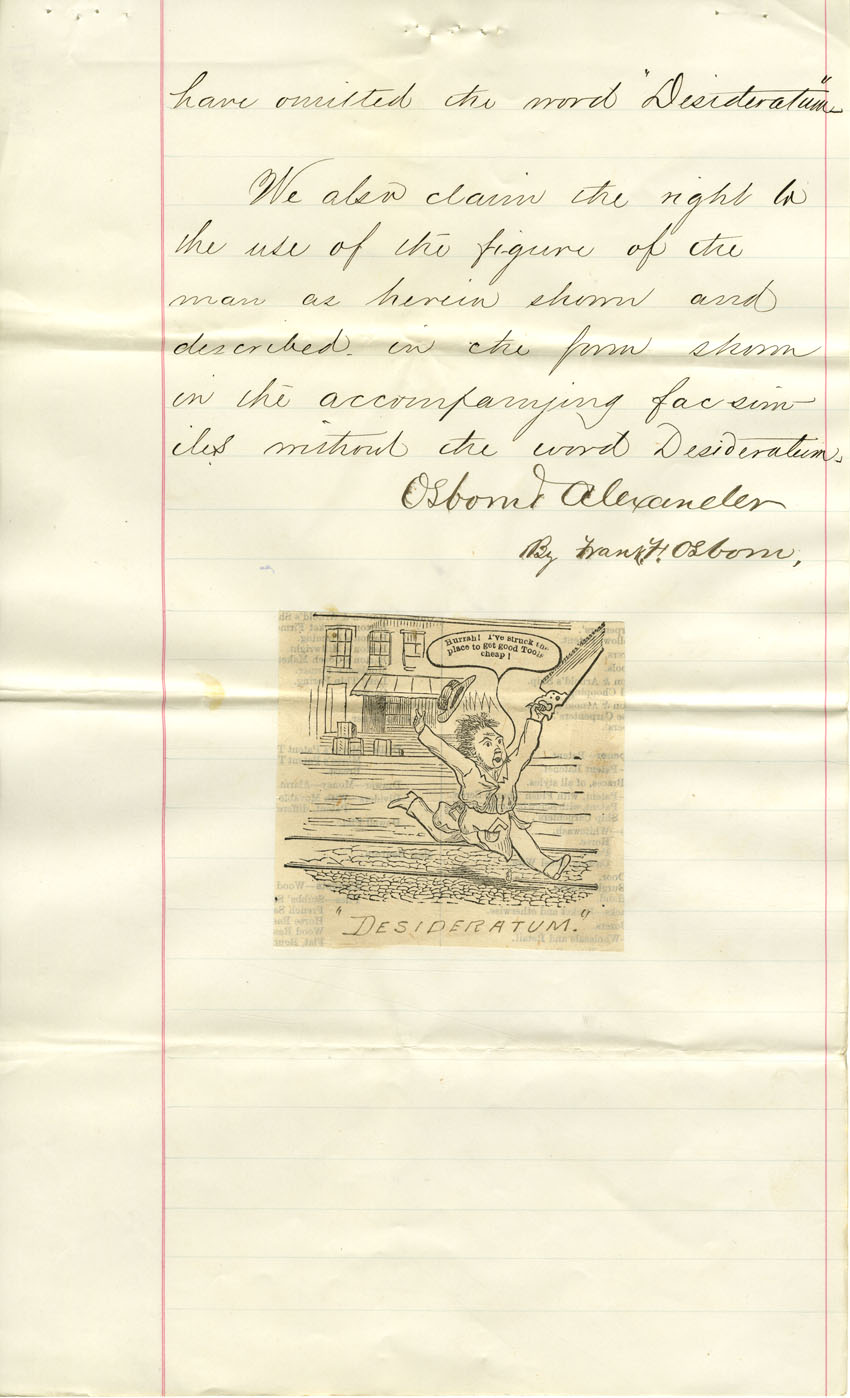 have omitted the word "Desideratum"
We also claim the right to
the use of the figure of the
man as herein shown and
described in the form shown
in the accompanying fac sim-
iles without the word Desideratum.
Osborn & Alexander
By Frank F. Osborn,
Hurrah! I've struck the
place to get good Tools
cheap!
"DESIDERATUM."